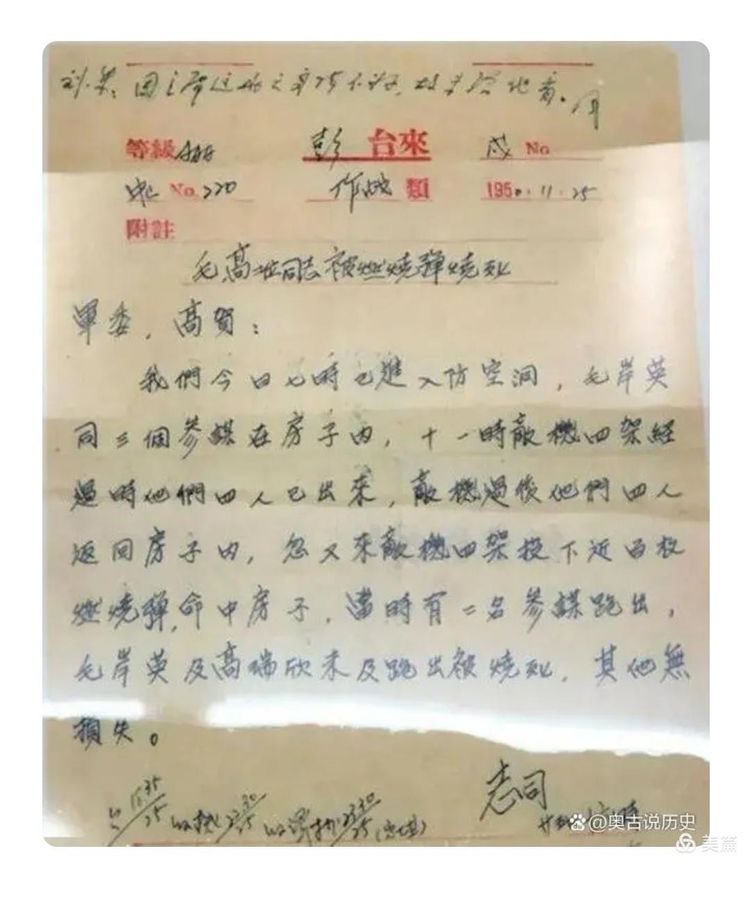 等級AAAA 彭 台來 戌 No
No.220 作战 類 1950.11.25
附註
毛高二位同志被燃燒彈燒死
軍委，高賀：
我們今日七時已進入防空洞，毛岸英
同三個參謀在房子內，十一時敵機四架經
過時他們四人已出來，敵機過後他們四人
返回房子內，忽又來敵機四架投下近百枚
燃燒彈，命中房子，當時有二名參謀跑出，
毛岸英及高瑞欣未及跑出被燒死，其他無
損失。
志司
@奥古说历史
美篇